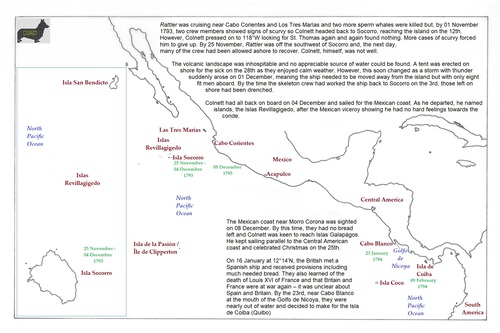 Rattler was cruising near Cabo Corientes and Los Tres Marias and two more sperm whales were killed but, by 01 November
1793, two crew members showed signs of scurvy so Colnett headed back to Socorro, reaching the island on the 12th.
However, Colnett pressed on to 118°W looking for St. Thomas again and again found nothing. More cases of scurvy forced
him to give up. By 25 November, Rattler was off the southwest of Socorro and, the next day,
many of the crew had been allowed ashore to recover. Colnett, himself, was not well.
The volcanic landscape was inhospitable and no appreciable source of water could be found. A tent was erected on
shore for the sick on the 28th as they enjoyed calm weather. However, this soon changed as a storm with thunder
suddenly arose on 01 December, meaning the ship needed to be moved away from the island but with only eight
fit men aboard. By the time the skeleton crew had worked the ship back to Socorro on the 3rd, those left on
shore had been drenched.
Colnett had all back on board on 04 December and sailed for the Mexican coast. As he departed, he named
islands, the Islas Revillagigedo, after the Mexican viceroy showing he had no hard feelings towards the
conde.
Isla San Benedicto
North
Pacific
Ocean
Las Tres Marias
Islas
Revillagigedo
Cabo Corientes
Isla Socorro
25 November -
04 December
1793
08 December
1793
Mexico
Acapulco
Islas
Revillagigedo
North
Pacific
Ocean
Central America
The Mexican coast near Morro Corona was sighted
on 08 December. By this time, they had no bread
left and Colnett was keen to reach Islas Galapágos.
He kept sailing parallel to the Central American
coast and celebrated Christmas on the 25th.
On 16 January at 12°14'N, the British met a
Spanish ship and received provisions including
much needed bread. They also learned of the
death of Louis XVI of France and that Britain and
France were at war again – it was unclear about
Spain and Britain. By the 23rd, near Cabo Blanco
at the mouth of the Golfo de Nicoya, they were
nearly out of water and decided to make for the Isla
de Coiba (Quibo)
Isla de la Pasión /
Île de Clipperton
25 November -
04 December
1793
Isla Socorro
Cabo Blanco
23 January
1794
Golfo
de
Nicoya
Isla de
Coiba
08 February
1794
Isla Coco
North
Pacific
Ocean
South
America